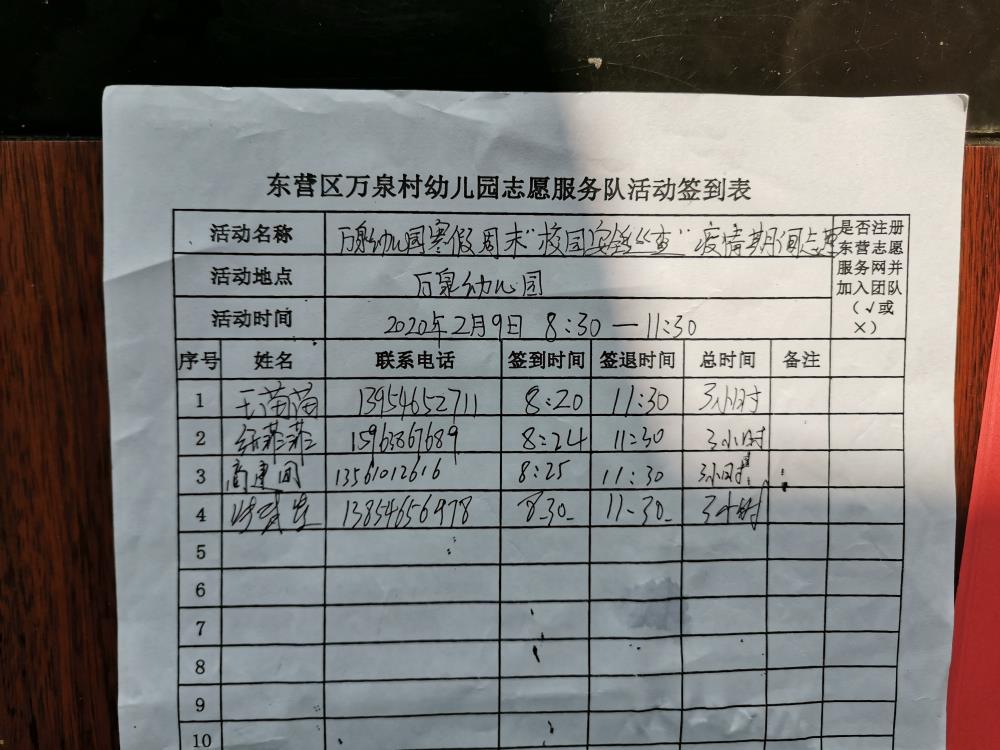 东营区万泉村幼儿园志愿服务队活动签到表
活动名称 万泉幼儿园寒假周末"校园安全 查"疫情期间志愿
是否注册
东营志愿
服务网并
加入团队
（√或
×）
活动地点 万泉幼儿园
活动时间 2020年2月9日 8:30—11:30
序号 姓名 联系电话 签到时间 签退时间 总时间 备注
1 王苗苗 13954652711 8:20 11:30 3小时
2 菲菲 15963867689 8:24 11:30 3小时
3 高建国 13561012616 8:25 11:30 3小时
4 13854656978 8-30- 11-30- 3小时
5
6
7
8
9
10